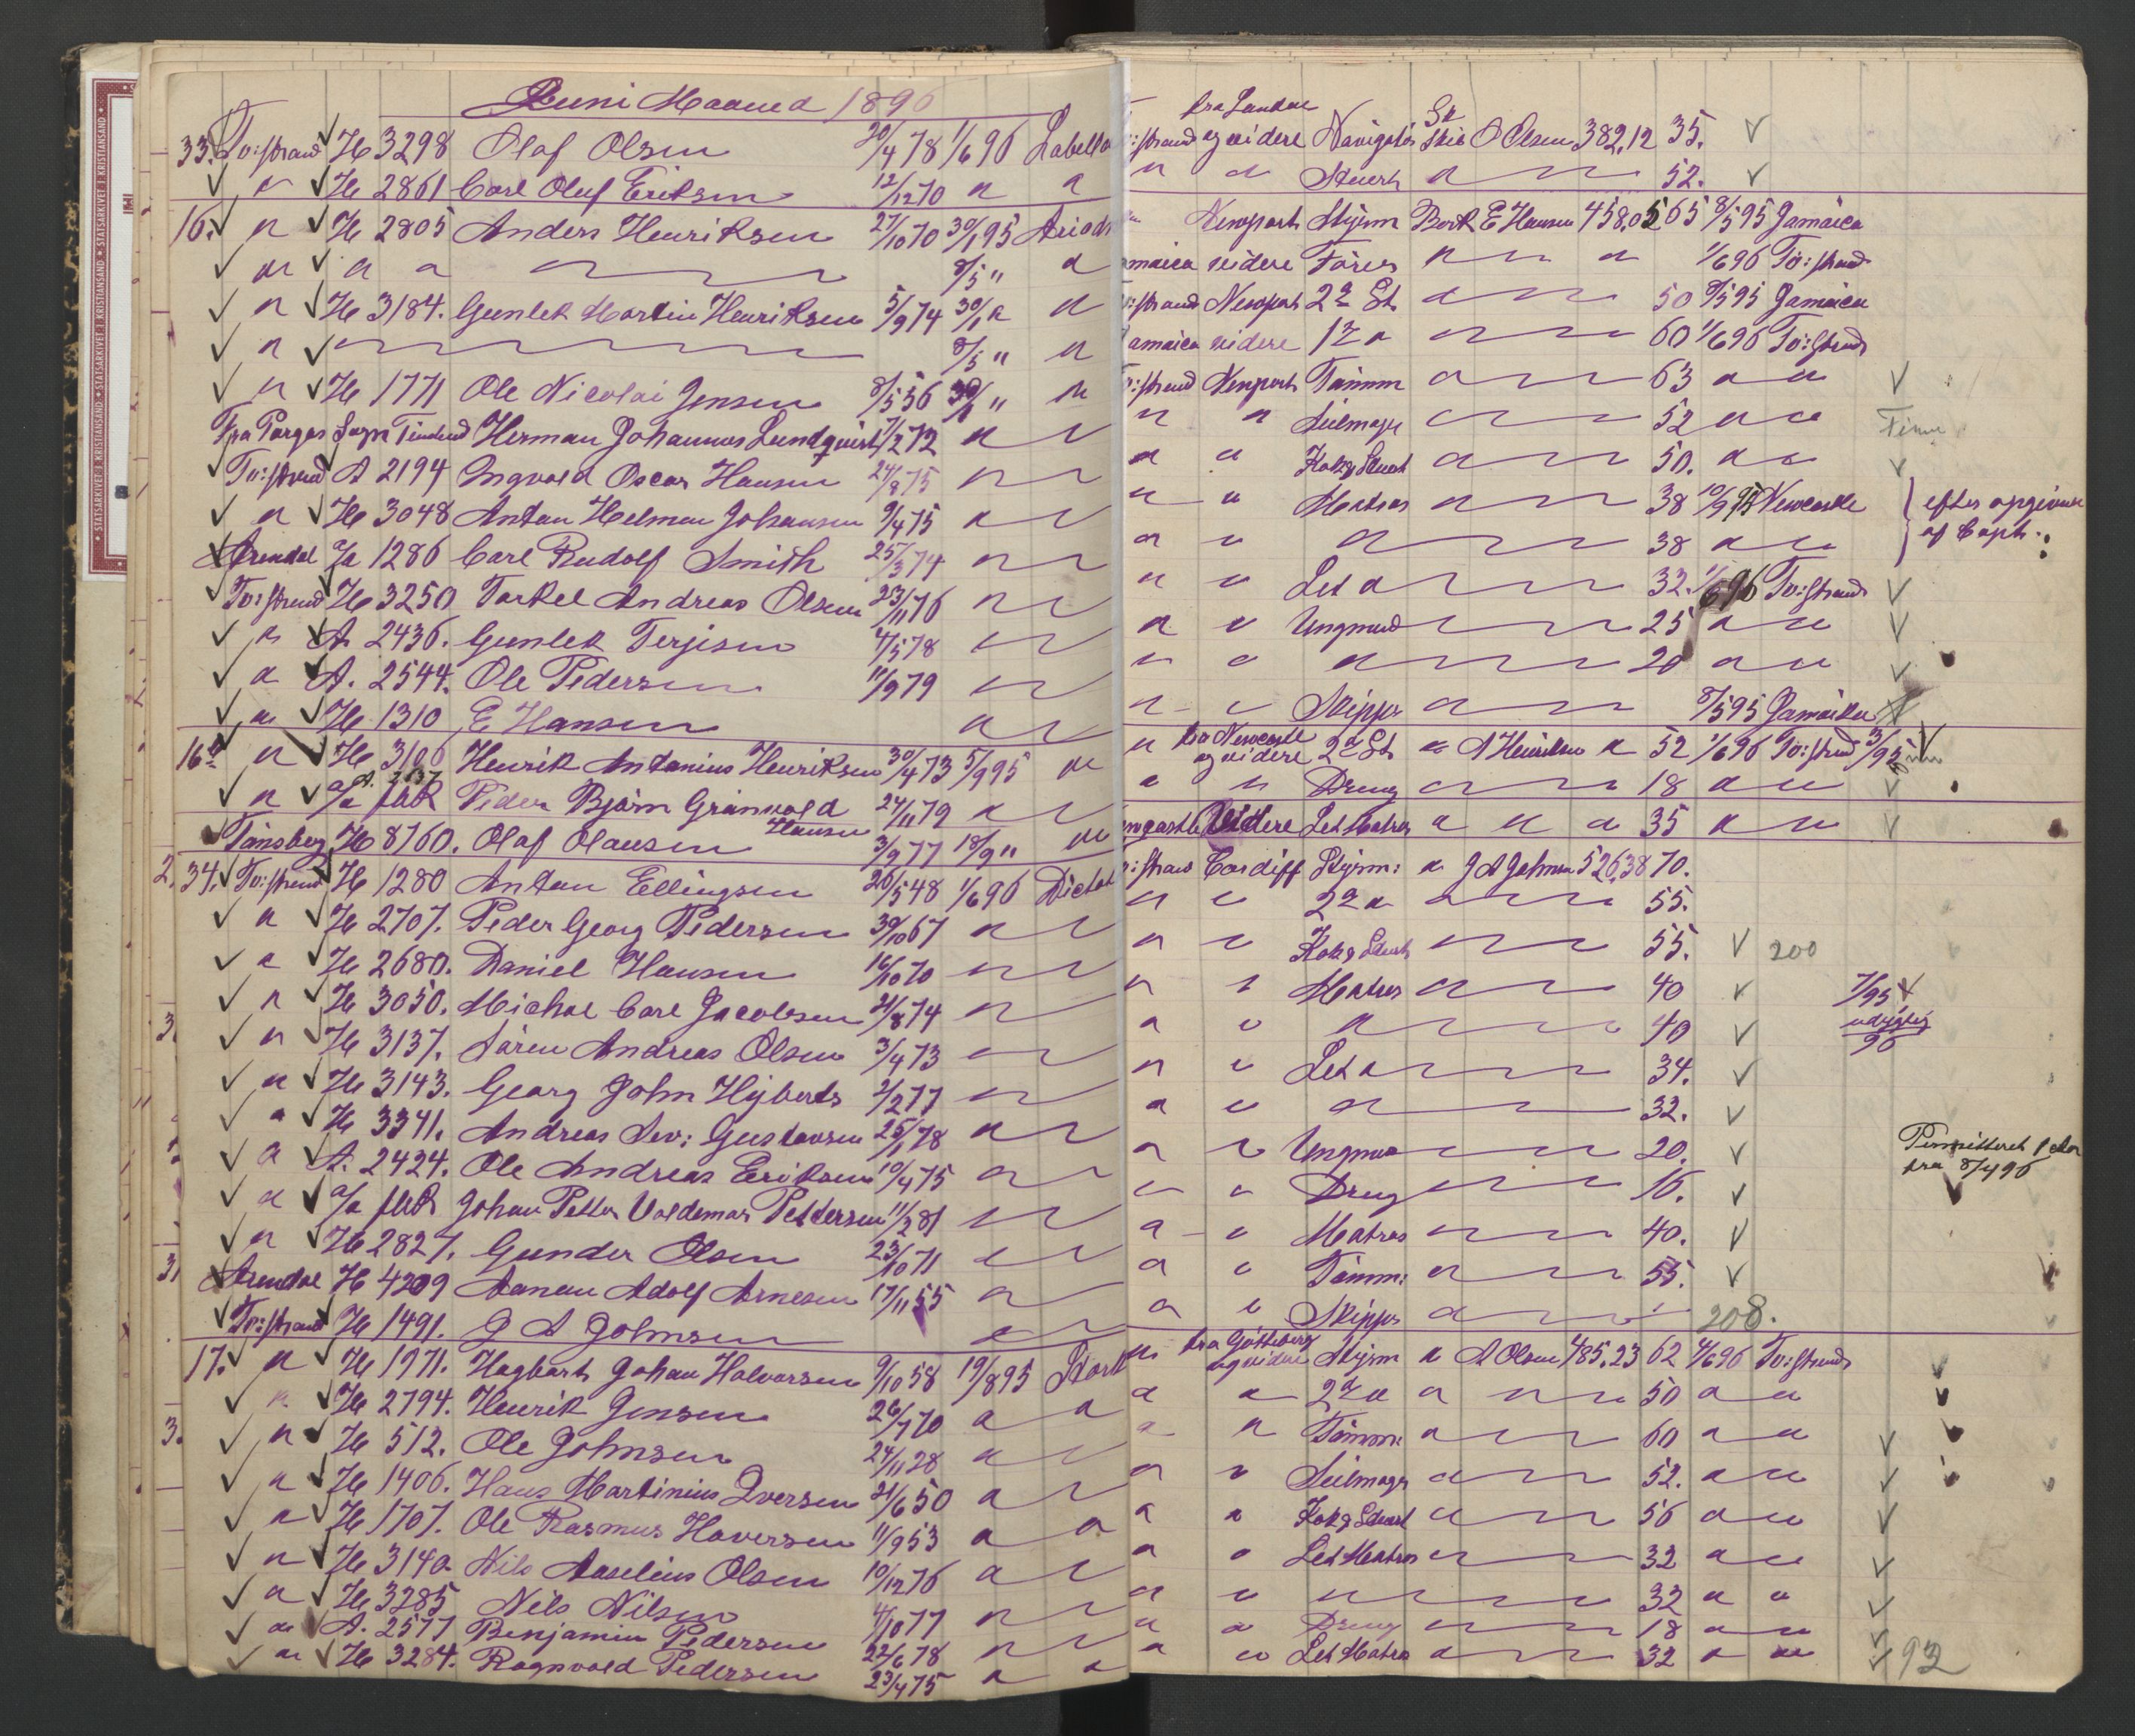 Juni Maaned 1896
33. Tv:strand H 3298 Olaf Olsen 20/4 78 1/6 96 Labella
" H 2861 Carl Oluf Eriksen 12/12 70 " "
16. " H 2805 Anders Henriksen 27/10 70 30/1 95 Ariadn
" " " 8/5 " "
" H 3184. Gunlek Martin Henriksen 5/9 74 30/1 " "
" 8/5 " "
" H 1771 Ole Nicolai Jensen 8/5 56 30/1 " "
Fra Pargas Sogn Herman Johannes Lundquist 7/2 72 "
Tv:strand A 2194 Ingvald Oscar Hansen 24/8 75 "
" H 3048 Antan Helmen Johansen 9/4 75 "
Arendal A/a 1286 Carl Rudolf Smith 25/3 74 "
Tv:strand H 3250 Tarkel Andreas Olsen 23/11 76 "
" A. 2436. Gunlek Terjesen 4/5 78 "
" A. 2544. Ole Pedersen 11/9 79 "
" H 1310 E Hansen "
16a " H 3106 Henrik Antonius Henriksen 30/4 73 5/9 95 "
" A. 2637 Peder Bjørn Grånvold Hansen 24/11 79 "
Tønsberg H 8760. Olaf Olausen 3/9 77 18/9 " "
34. Tv:strand H 1280 Antan Ellingsen 26/5 48 1/6 96 Dictat
" H 2707. Peder Georg Pedersen 30/10 67 "
" H 2680. Daniel Hansen 16/10 70 "
" H 3050. Michal Carl Jacobsen 21/8 74 "
" H 3137. Sören Andreas Olsen 3/4 73 "
" H 3143. Georg John Hyberts 2/2 77 "
" H 3341. Andreas Sev: Gustavsen 25/1 78 "
" A. 2424. Ole Andreas Eriksen 10/4 75 "
" Johan Petter Valdemar Pettersen 11/2 81 "
" H 2827. Gunder Olsen 23/10 71 "
Arendal H 4209 Aanen Adolf Arnesen 17/11 55 "
Tv:strand H 1491. J A Johnsen "
17. " H 1971. Hagbart Johan Halvorsen 9/10 58 19/8 95 Stork
" H 2794. Henrik Jensen 26/7 70 " "
" H 512. Ole Johnsen 24/11 28 "
" H 1406. Hans Martinius Iversen 21/6 50 "
" H 1707. Ole Rasmus Haversen 11/9 53 " "
" H 3140. Nils Aaselius Olsen 10/12 76 "
" H 3285 Nils Nilsen 4/10 77 "
" A. 2577 Benjamin Pedersen 22/6 78 "
" H 3284. Ragnvald Pedersen 23/4 75 " "
:strand fra Landal og videre Navigatör Sk Skib O Olsen 382,12 35.
" " Stuert " 52.
Newport Styrm Bark E Hansen 458,05 65 8/5 95 Jamaica
amaica videre Förer " " 1/6 96 Tv:strand
:strand Newport 2d St " 50 8/5 95 Jamaica
Jamaica videre 1st " " 60 1/6 96 Tv:strand
:strand Newport Tömm " 63 " "
" " Seilmager " 52 " " Finne
" " Kok & Stuert " 50. " "
" " Matros " 38 10/9 95 Newcastle } efter opgivende
" " " 38 " " af Capt.
" " Let " 32. 1/6 96 Tv:strand
" " Ungmand 25 " "
" " " 20 " "
" " Skipper " 8/5 95 Jamaika
" fra Newcastle og videre 2d St " A Henriksen " 52 1/6 96 Tv:strand 3/95
" " Dreng " 18 " "
ewcastle Videre Let Matros " " " 35 " "
:strand Cardiff Styrm: " J A Johnsen 526,38 70.
" " 2d " " 55.
" " Kok & Stuert " 55. 200
" " Matros " 40 7/95
" " " 40 udygtig 96
" " Let " 34.
" " " 32.
" " Ungmand 20. Permitteret
" " Dreng 16. fra 8/4 96
" " Matros " 40.
" " Tömm: " 55.
" " Skipper " 208.
" fra Götteborg og videre Styrm " A Olsen 485,23 62 4/6 96 Tv:strand
" " 2d " " " 50 " "
" " Tömm: " 60 " "
" " Seilmager " 52. " "
" " Kok & Stuert " 56 " "
" " Let Matros " 32 " "
" " " 32 " "
" " Dreng " 18 " "
" " Let Matros " 32 " " 92
STATSARKIVET I KRISTIANSAND